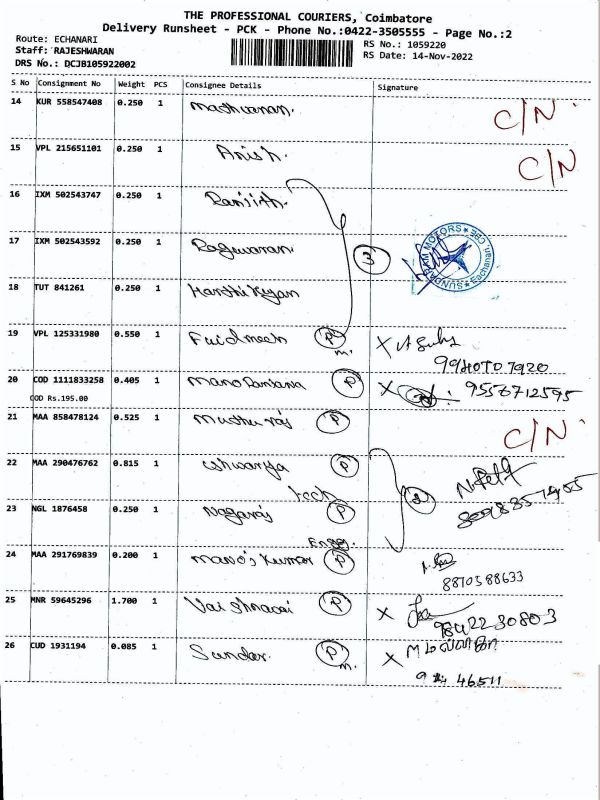 THE PROFESSIONAL COURIERS, Coimbatore
Delivery Runsheet - PCK - Phone No.:0422-3505555 - Page No.:2
Route: ECHANARI
RS No.: 1059220
Staff: RAJESHWARAN
RS Date: 14-Nov-2022
DRS No.: DCJB105922002
S No Consignment No Weight PCS Consignee Details Signature
14 KUR 558547408 0.250 1 C/N
15 VPL 215651101 0.250 1 Anish. C/N
16 IXM 502543747 0.250 1 Ranjith.
17 IXM 502543592 0.250 1 Raguvaran. 3
SUNDARAM MOTORS CBE Eachanari
18 TUT 841261 0.250 1 Karthikeyan
19 VPL 125331980 0.550 1 P m.
20 COD 1111833258 0.405 1 P X
COD Rs.195.00
21 MAA 858478124 0.525 1 Muthu raj P C/N
22 MAA 290476762 0.815 1 Ishwarya P
Tech
23 NGL 1876458 0.250 1 Nagaraj P
Engg.
24 MAA 291769839 0.200 1 Manoj Kumar P
8870388633
25 MNR 59645296 1.700 1 Vaishnavi P X
26 CUD 1931194 0.085 1 Sundar. P m. X
46511